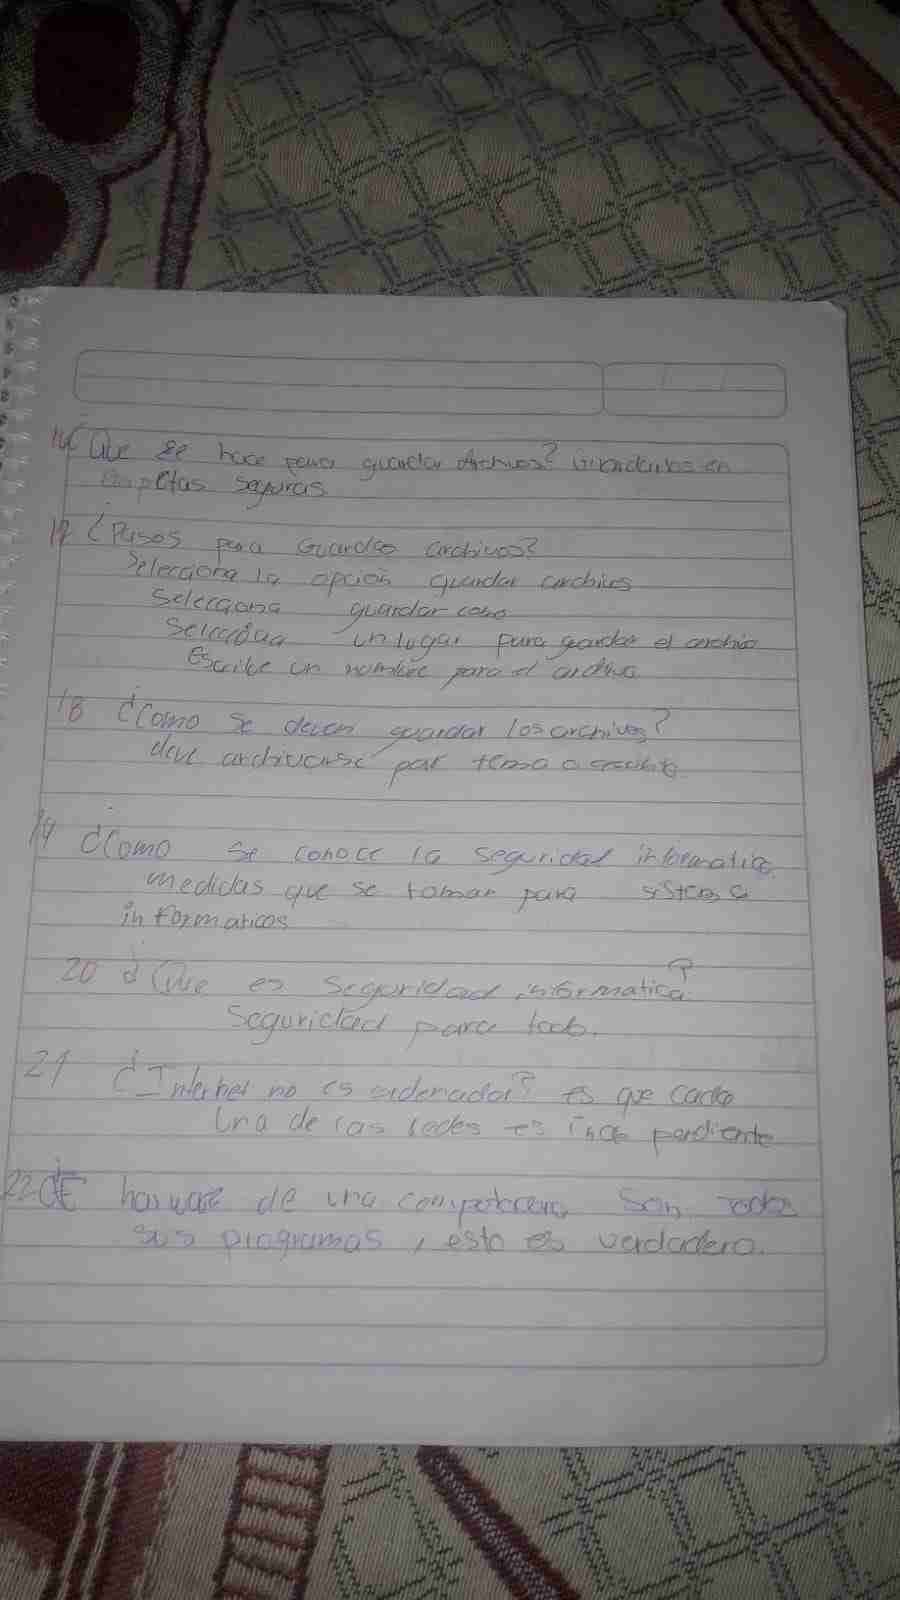 16 ¿Que se hace para guardar Archivos? Guardarlos en
carpetas seguras
17 ¿Pasos para Guardso archivos?
Selecciona la opción guardar archivos
Selecciona guardar como
Selecciona un lugar para guardar el archivo
Escribe un nombre para el archivo
18 ¿Como se deven guardar los archivos?
deve archivarse por tema o
19 ¿Como se conoce la seguridad informatica
medidas que se toman para sistemas
informaticos
20 ¿Que es Seguridad informatica?
Seguridad para todo.
21 ¿Internet no es ordenador? es que cada
Una de las redes es inde pendiente
22 ¿E de una computadora Son todos
sus programas, esto es verdadero.